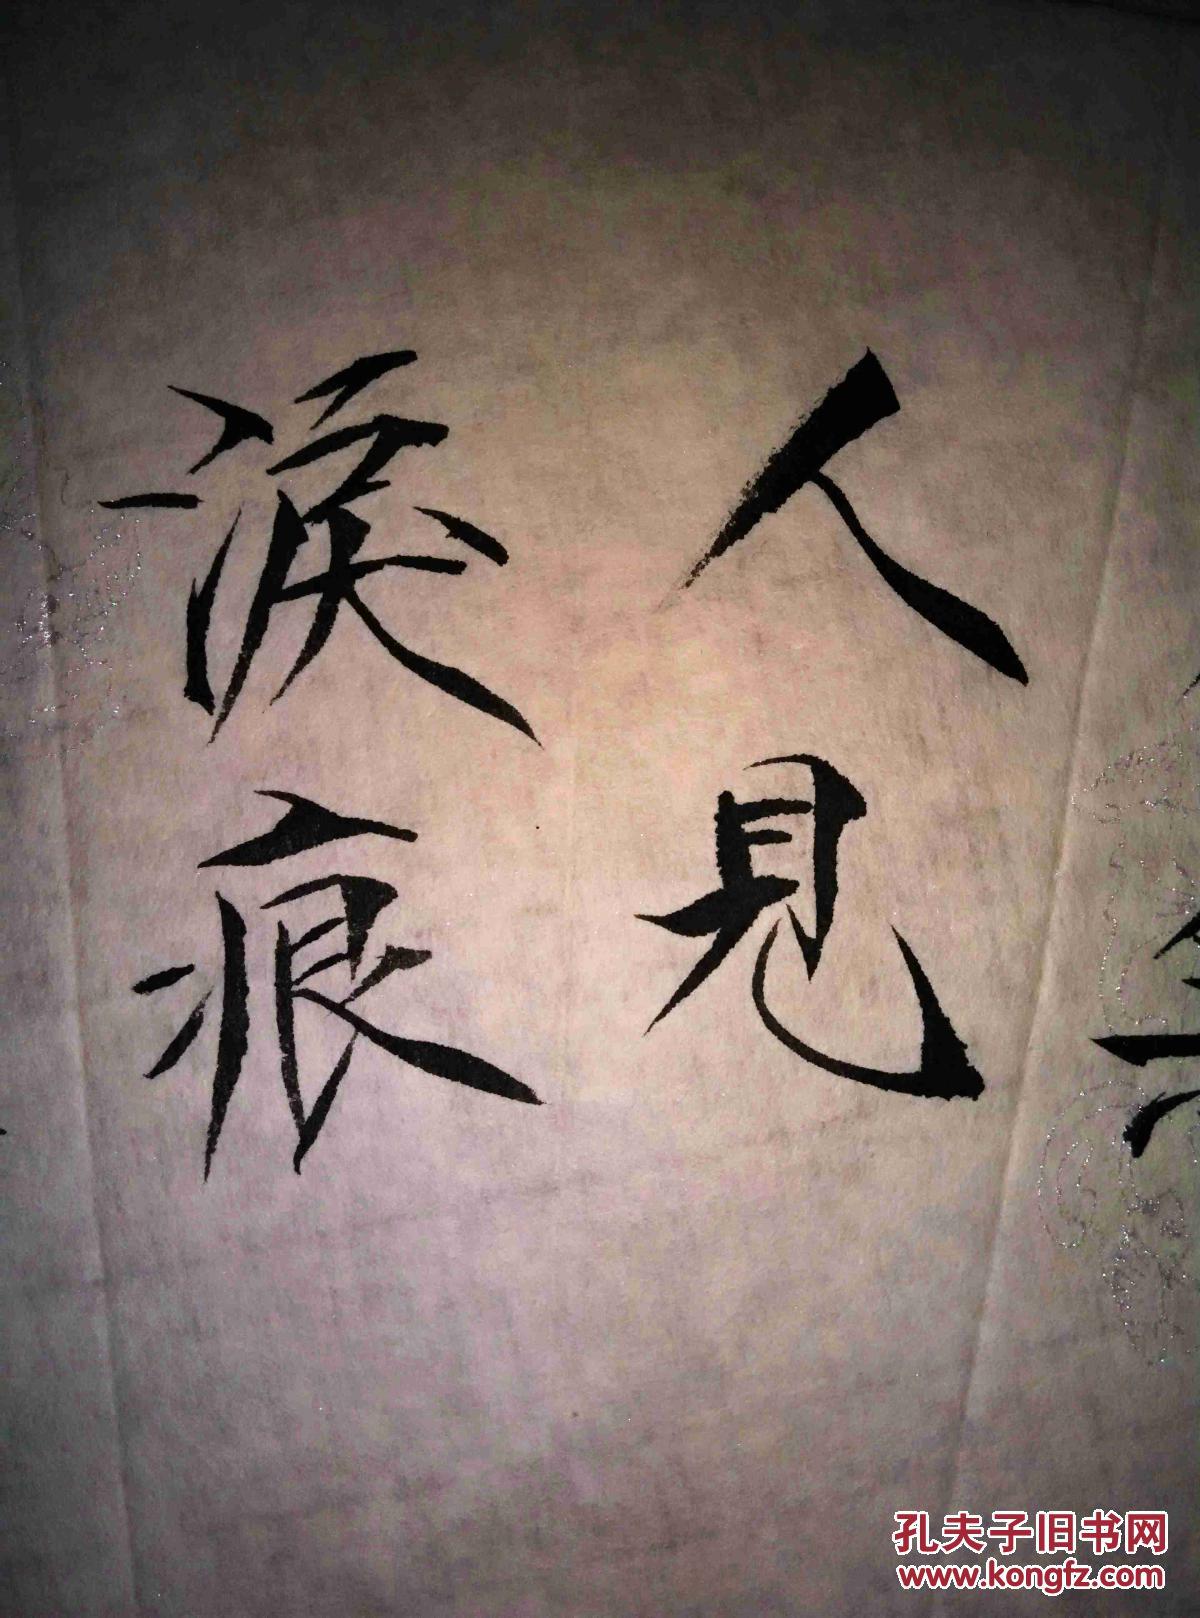 人見
淚痕
孔夫子旧书网
www.kongfz.com